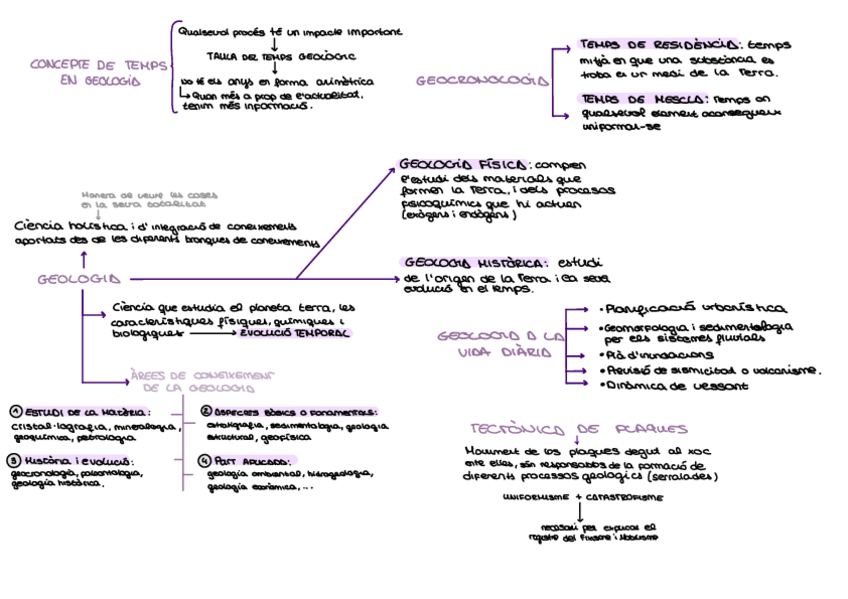 Qualsevol procés té un impacte important
TAULA DEL TEMPS GEOLÒGIC
no té els anys en forma aritmètrica
Quan més a prop de l'actualitat,
tenim més informació.
CONCEPTE DE TEMPS
EN GEOLOGIA
GEOCRONOLOGIA
TEMPS DE RESIDÈNCIA: temps
mitjà en que una substància es
troba es un medi de la Terra.
TEMPS DE MESCLA: Temps en
qualsevol element aconsegueix
uniformar-se
GEOLOGIA FÍSICA: compren
l'estudi dels materials que
formen la Terra, i dels procesos
fisicoquímics que hi actuen
(exògens i endògens)
Manera de veure les coses
en la seva totalitat
Ciència holística i d'integració de coneixements
aportats des de les diferents branques de coneixements
GEOLOGIA
GEOLOGIA HISTÒRICA: estudi
de l'origen de la Terra i la seva
evolució en el temps.
Ciència que estudia el planeta terra, les
característiques físiques, químiques i
biologiques EVOLUCIÓ TEMPORAL
GEOLOGIA A LA
VIDA DIÀRIA
• Planificació urbanística
• Geomorfologia i sedimentologia
per els sistemes fluvials
• Plà d'inundacions
• Previsió de sismicitat o volcanisme.
• Dinàmica de vessant
ÀREES DE CONEIXEMENT
DE LA GEOLOGIA
1 ESTUDI DE LA MATÈRIA:
cristal·lografia, mineralogia,
geoquímica, petrologia
2 ASPECTES BÀSICS O FONAMENTALS:
estratigrafia, sedimentologia, geologia
estructural, geofísica
3 Història i evolució:
geocronologia, paleontologia,
geologia històrica.
4 PART APLICADA:
geologia ambiental, hidrogeologia,
geologia econòmica, ...
TECTÒNICA DE PLAQUES
Moviment de les plaques degut al xoc
entre elles, són responsables de la formació de
diferents processos geològics (serralades)
UNIFORMISME + CATASTROFISME
necesari per explicar el
registre del